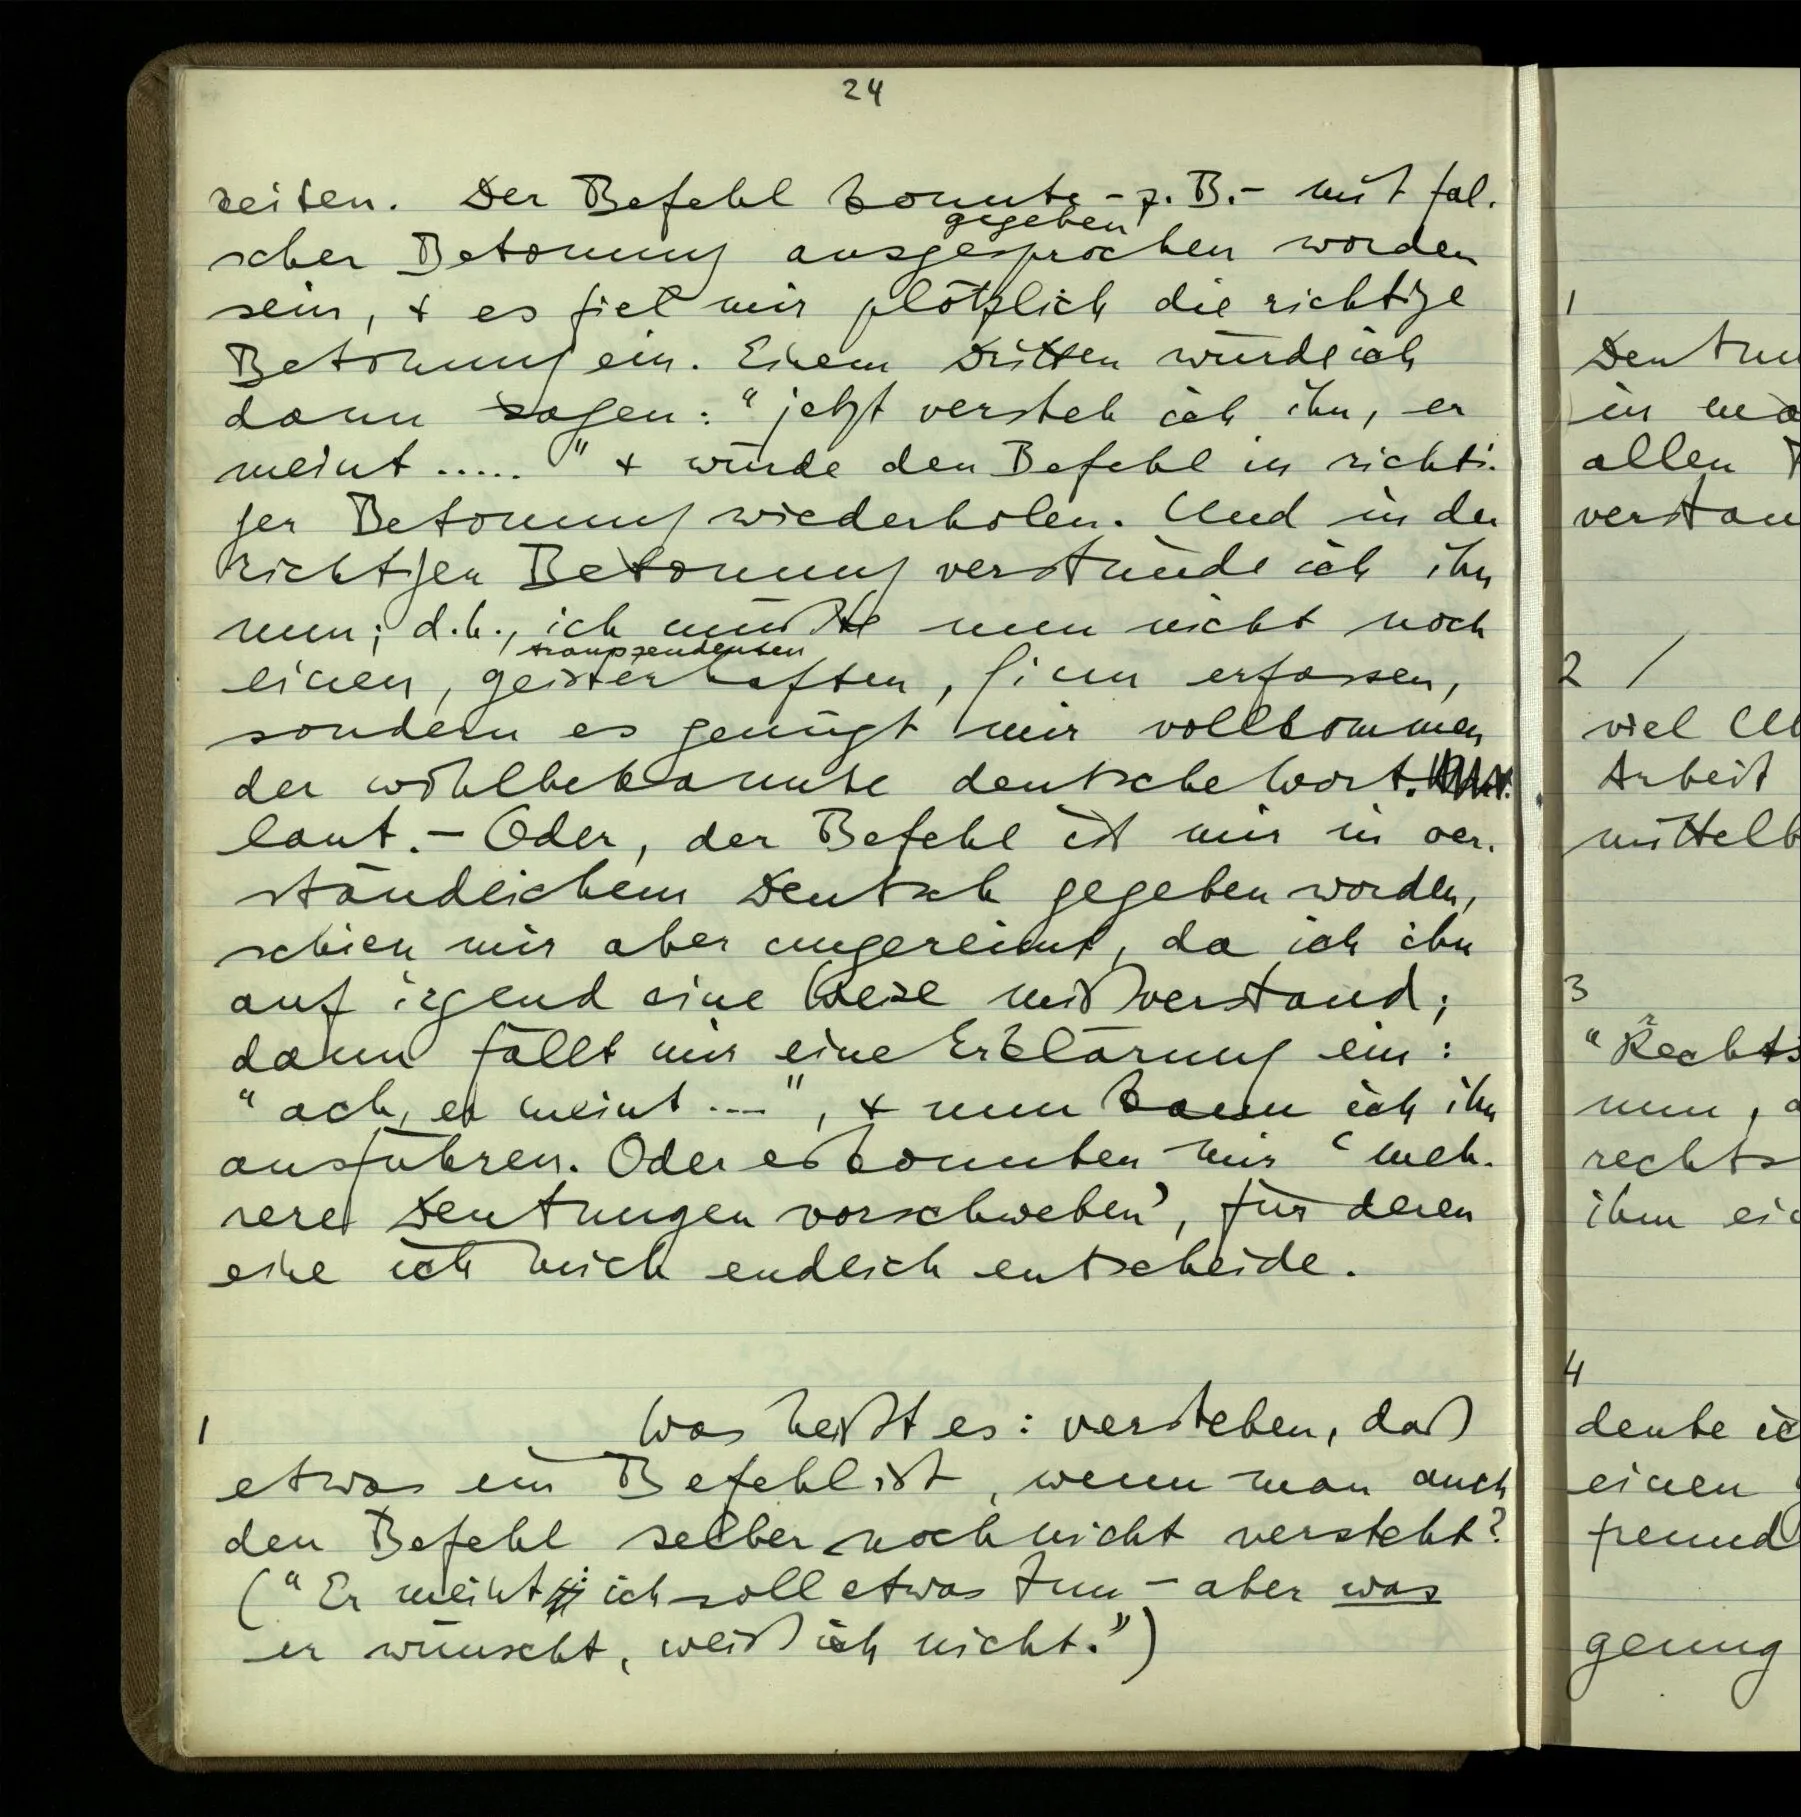 24
reiten. Der Befehl konnte – z. B. – mit fal-
gegeben
scher Betonung ausgesprochen worden
sein, + es fiel mir plötzlich die richtige
Betonung ein. Einem Dritten würde ich
dann sagen: "jetzt versteh ich ihn, er
meint ....." + würde den Befehl in richti-
ger Betonung wiederholen. Und in der
richtigen Betonung verstünde ich ihn
nun; d.h., ich müßte nun nicht noch
transzendenten
einen, geisterhaften, Sinn erfassen,
sondern es genügt mir vollkommen
der wohlbekannte deutsche Wort-
laut. – Oder, der Befehl ist mir in ver-
ständlichem Deutsch gegeben worden,
schien mir aber ungereimt, da ich ihn
auf irgend eine Weise mißverstand;
dann fällt mir eine Erklärung ein:
"ach, er meint ....", + nun kann ich ihn
ausführen. Oder es konnten mir ‘meh-
rere Deutungen vorschweben’, für deren
eine ich mich endlich entscheide.
1
Was heißt es: verstehen, daß
etwas ein Befehl ist, wenn man auch
den Befehl selber noch nicht versteht?
("Er meint: ich soll etwas tun – aber was
er wünscht, weiß ich nicht.")
1
Deutun
in
allen
verstan
2 /
viel
Arbeit
mittelb
3
"Rechts
nun, a
rechts
ihm
4
denke ic
einen
freund
genug